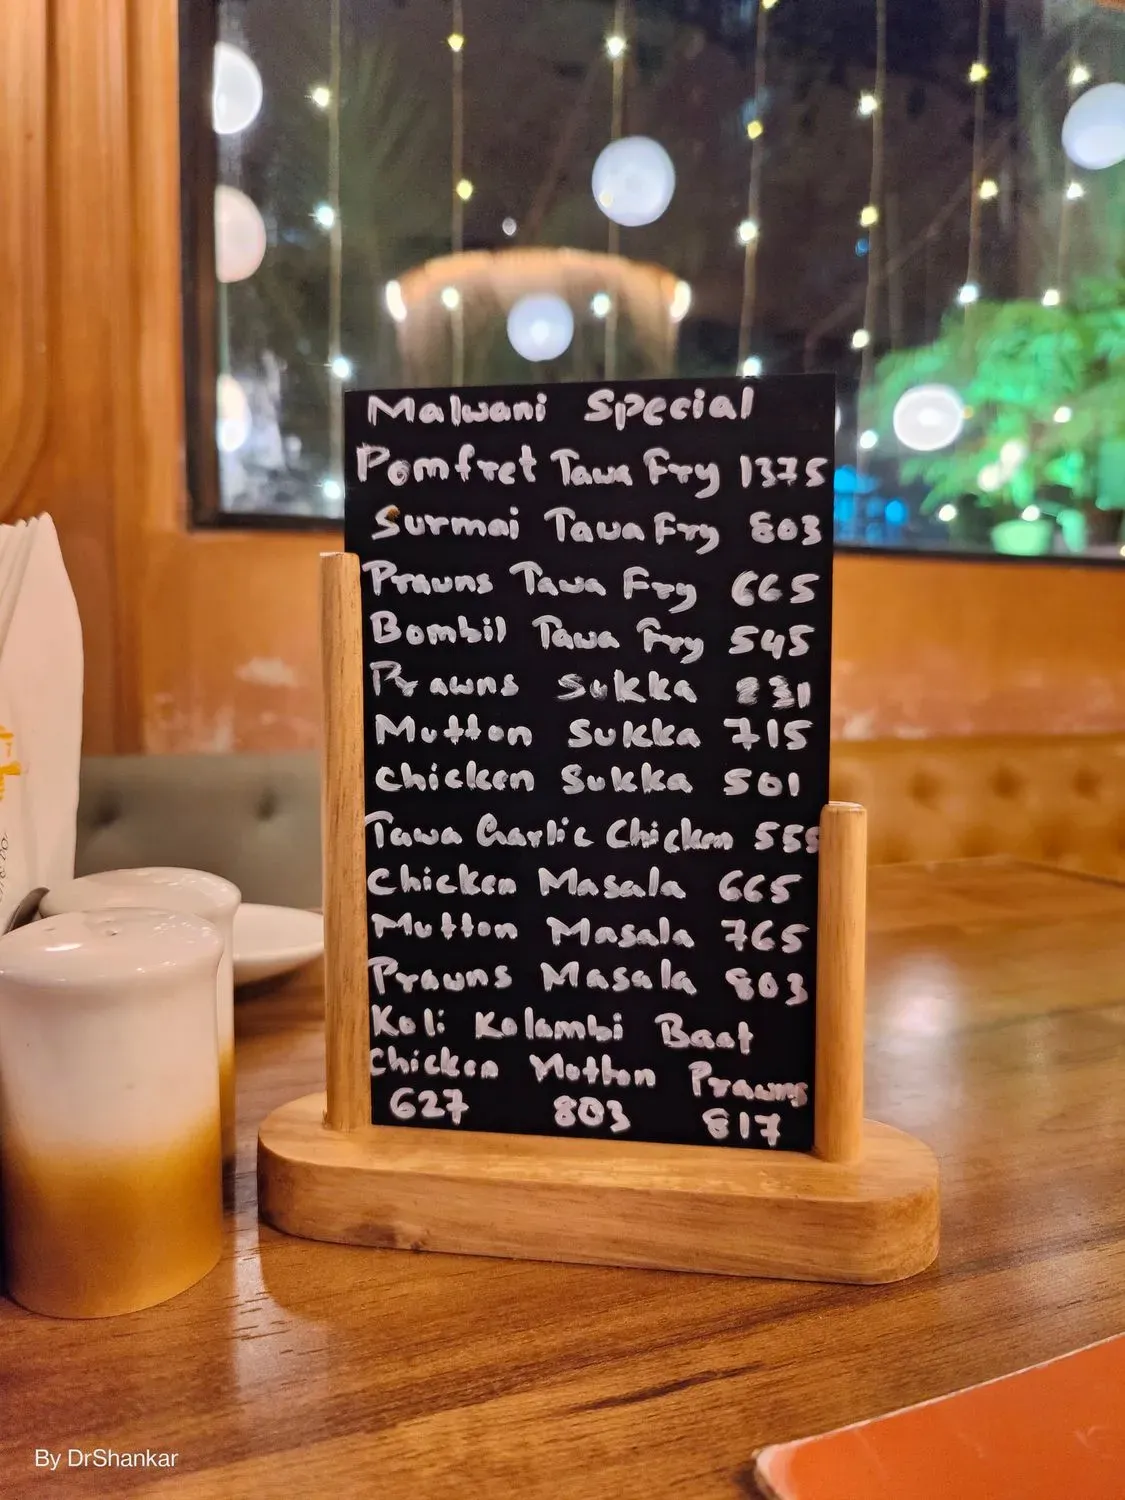 Malwani Special
Pomfret Tawa Fry 1375
Surmai Tawa Fry 803
Prawns Tawa Fry 665
Bombil Tawa Fry 545
Prawns Sukka 831
Mutton Sukka 715
Chicken Sukka 501
Tawa Garlic Chicken 555
Chicken Masala 665
Mutton Masala 765
Prawns Masala 803
Koli Kolambi Baat
Chicken Mutton Prawns
627 803 817
By DrShankar